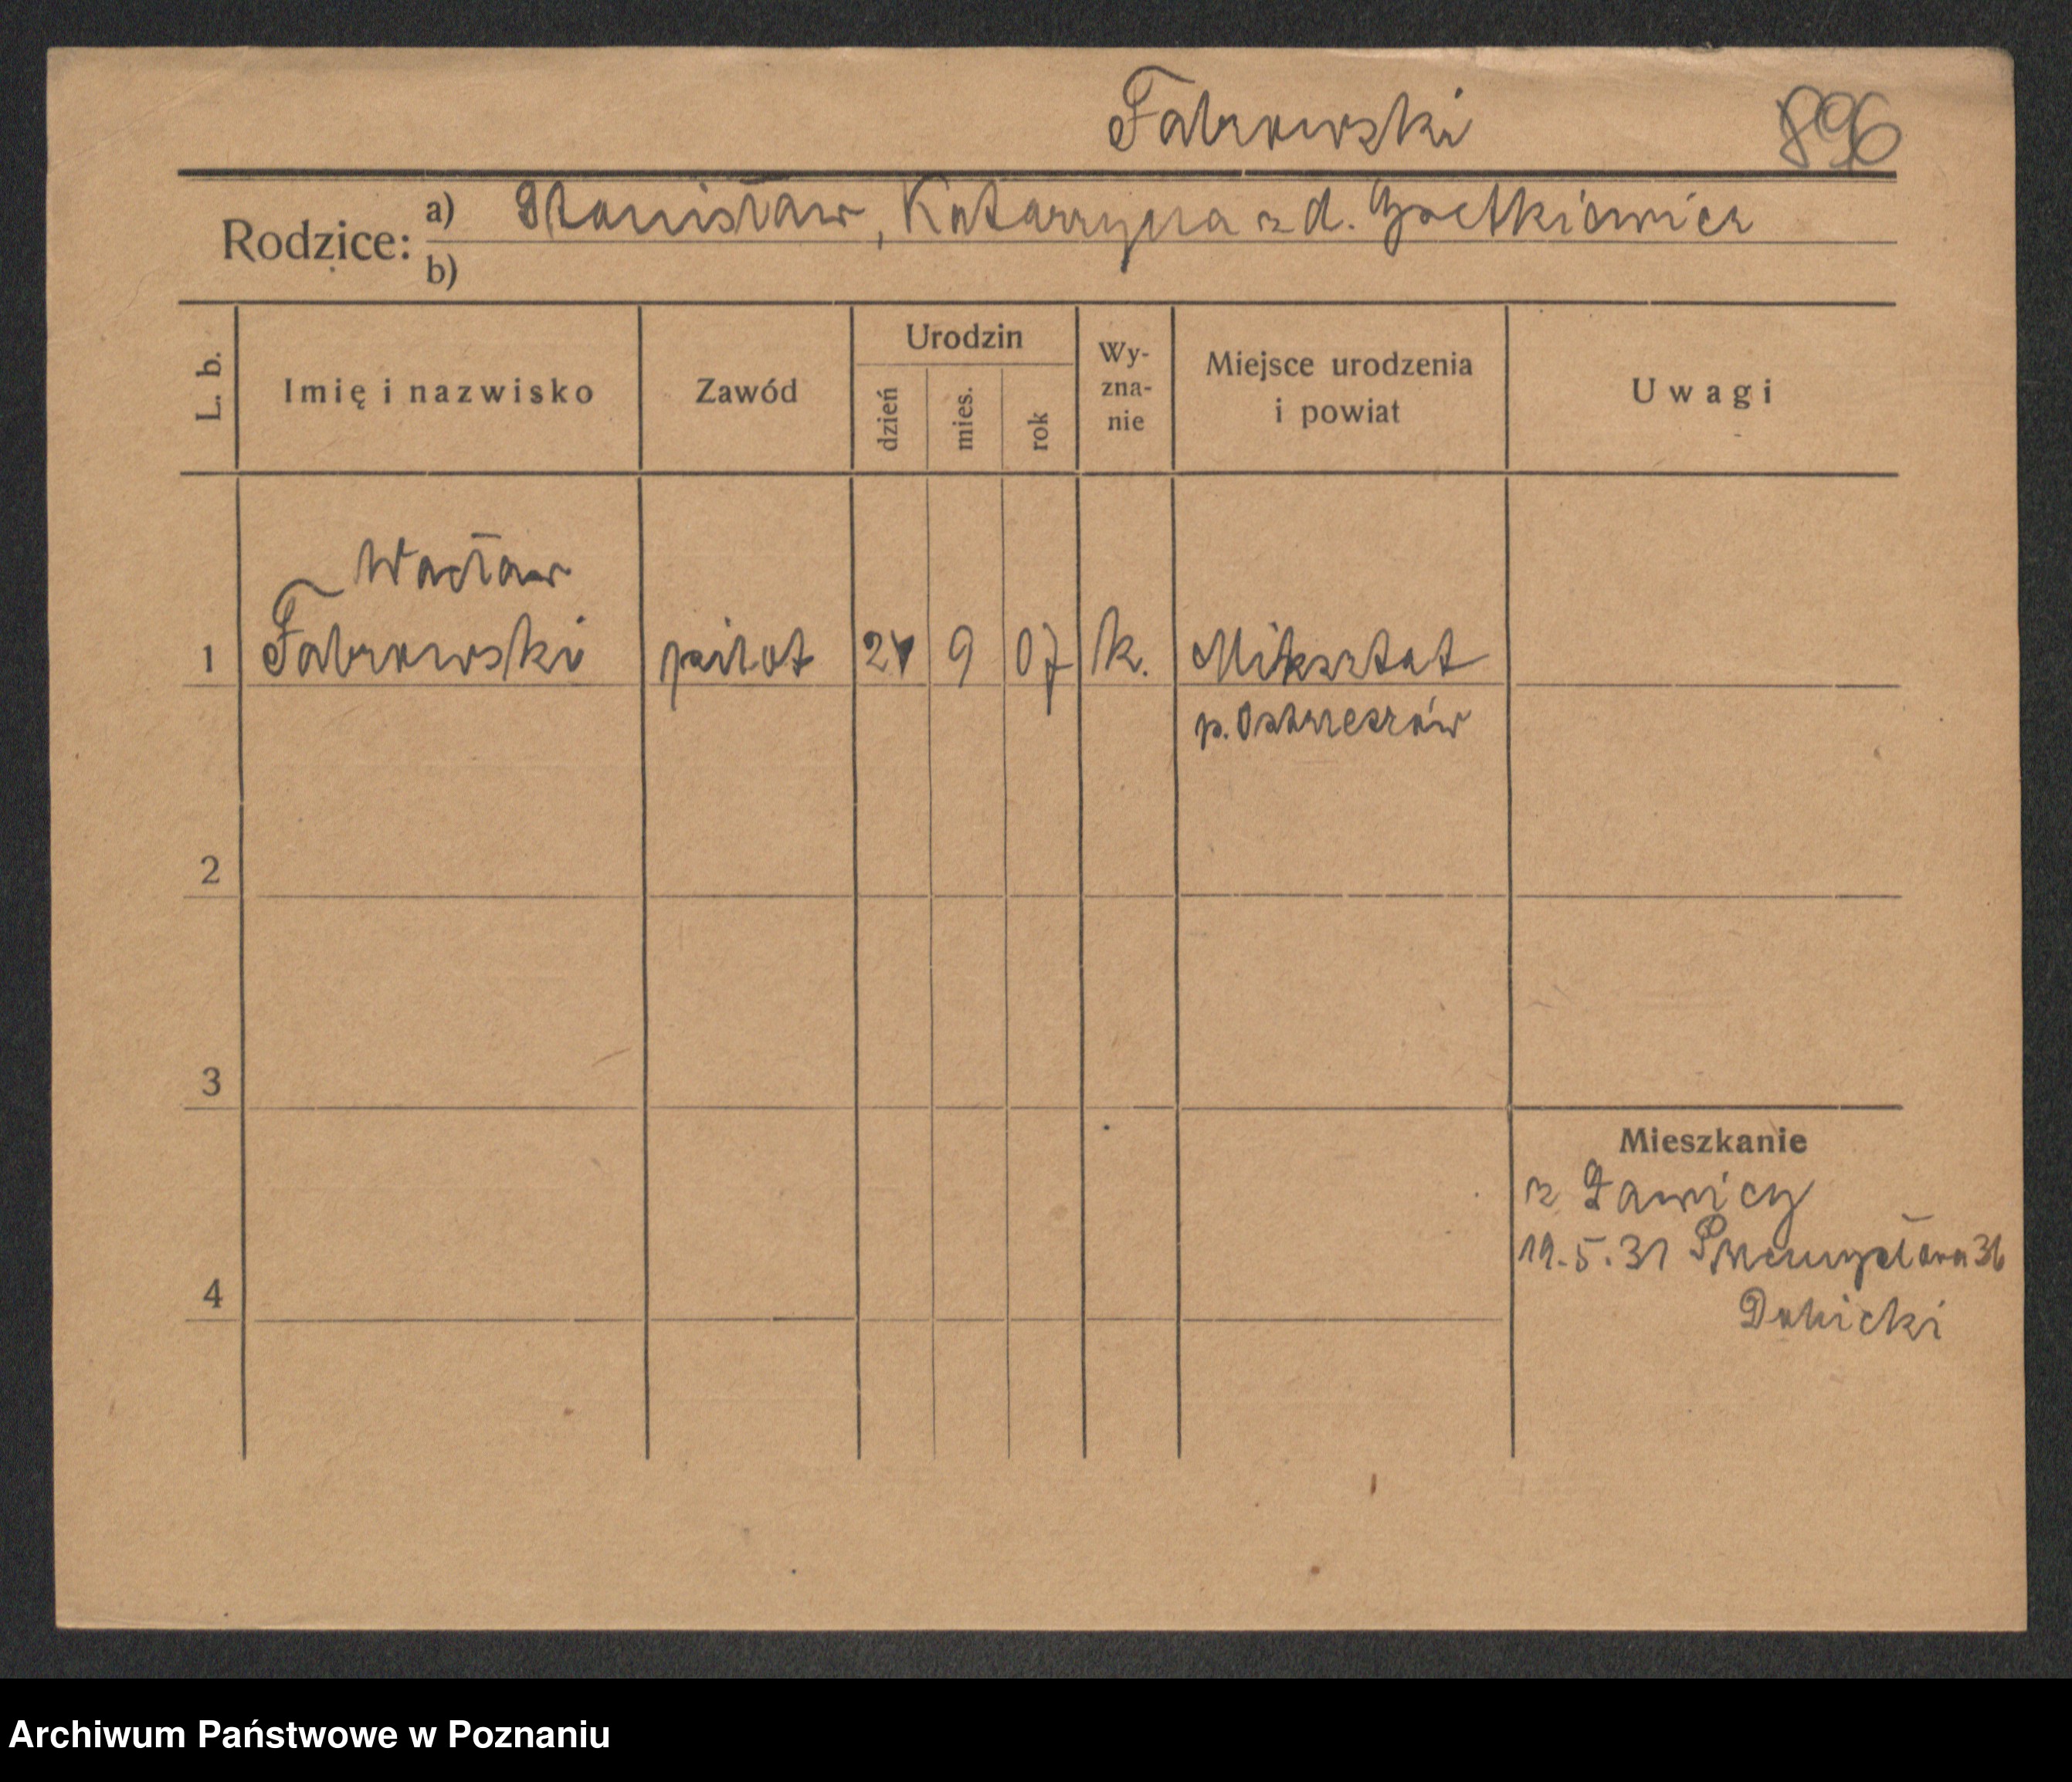 Fabrowski 896
Rodzice: a) Stanisław, Katarzyna z d.
b)
L. b. Imię i nazwisko Zawód Urodzin dzień mies. rok Wy-zna-nie Miejsce urodzenia i powiat Uwagi
Wacław
1 Fabrowski pilot 9 07 k. Miksztat
p. Ostrzeszów
2
3
Mieszkanie
z Ławicy
19.5.31 Przemysława 36
4
Archiwum Państwowe w Poznaniu